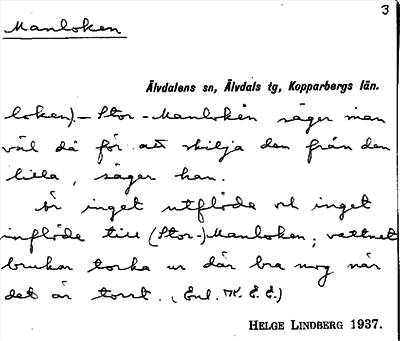 3
Manloken
Älvdalens sn, Älvdals tg, Kopparbergs län.
loken). – Stor-Manloken säger man
väl då för att skilja den från den
lilla, säger han.
Är inget utflöde och inget
inflöde till (Stor-)Manloken; vattnet
brukar torka ur där bra nog när
det är torrt. (Enl. E. E.)
HELGE LINDBERG 1937.